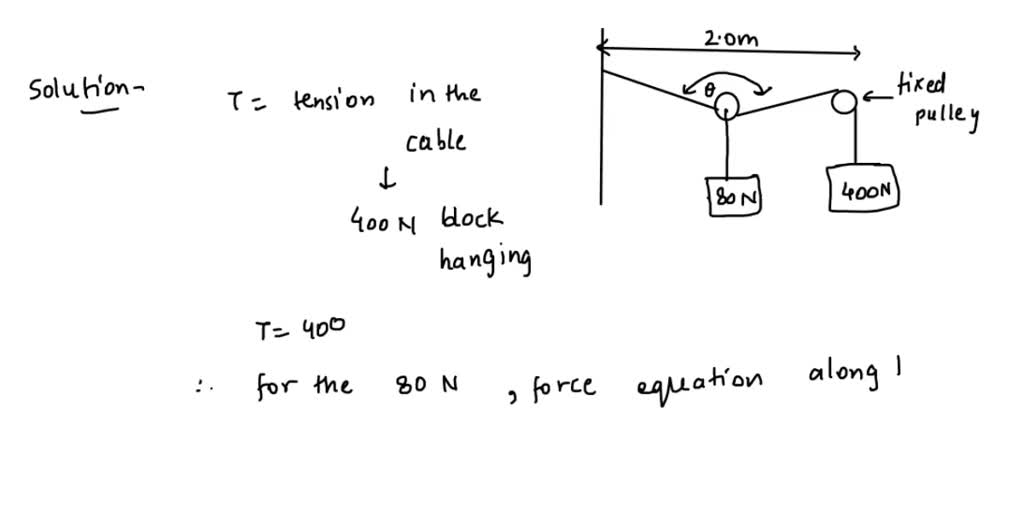 Solution-
T = tension in the
cable
↓
400 N block
hanging
2.0m
θ
fixed
pulley
80 N
400N
T = 400
∴ for the 80 N , force equation along